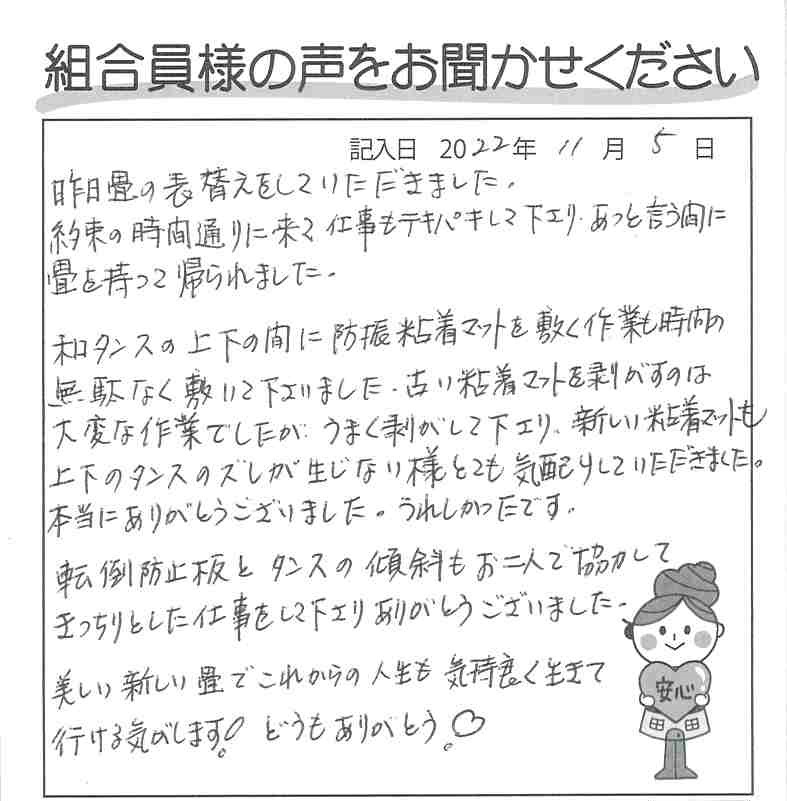 組合員様の声をお聞かせください
記入日 2022年 11月 5日
昨日畳の表替えをしていただきました。
約束の時間通りに来て仕事もテキパキして下エり、あっと言う間に
畳を持って帰られました。
和タンスの上下の間に防振粘着マットを敷く作業も時間の
無駄なく敷いて下エいました。古い粘着マットを剥がすのは
大変な作業でしたが うまく剥がして下エり、新しい粘着マットも
上下のタンスのズレが生じない様とても気配りしていただきました。
本当にありがとうございました。うれしかったです。
転倒防止板と タンスの傾斜もお二人で協力して
きっちりとした仕事をして下エり ありがとうございました。
美しい新しい畳でこれからの人生も 気持良く生きて
行ける気がします! どうもありがとう。
安心